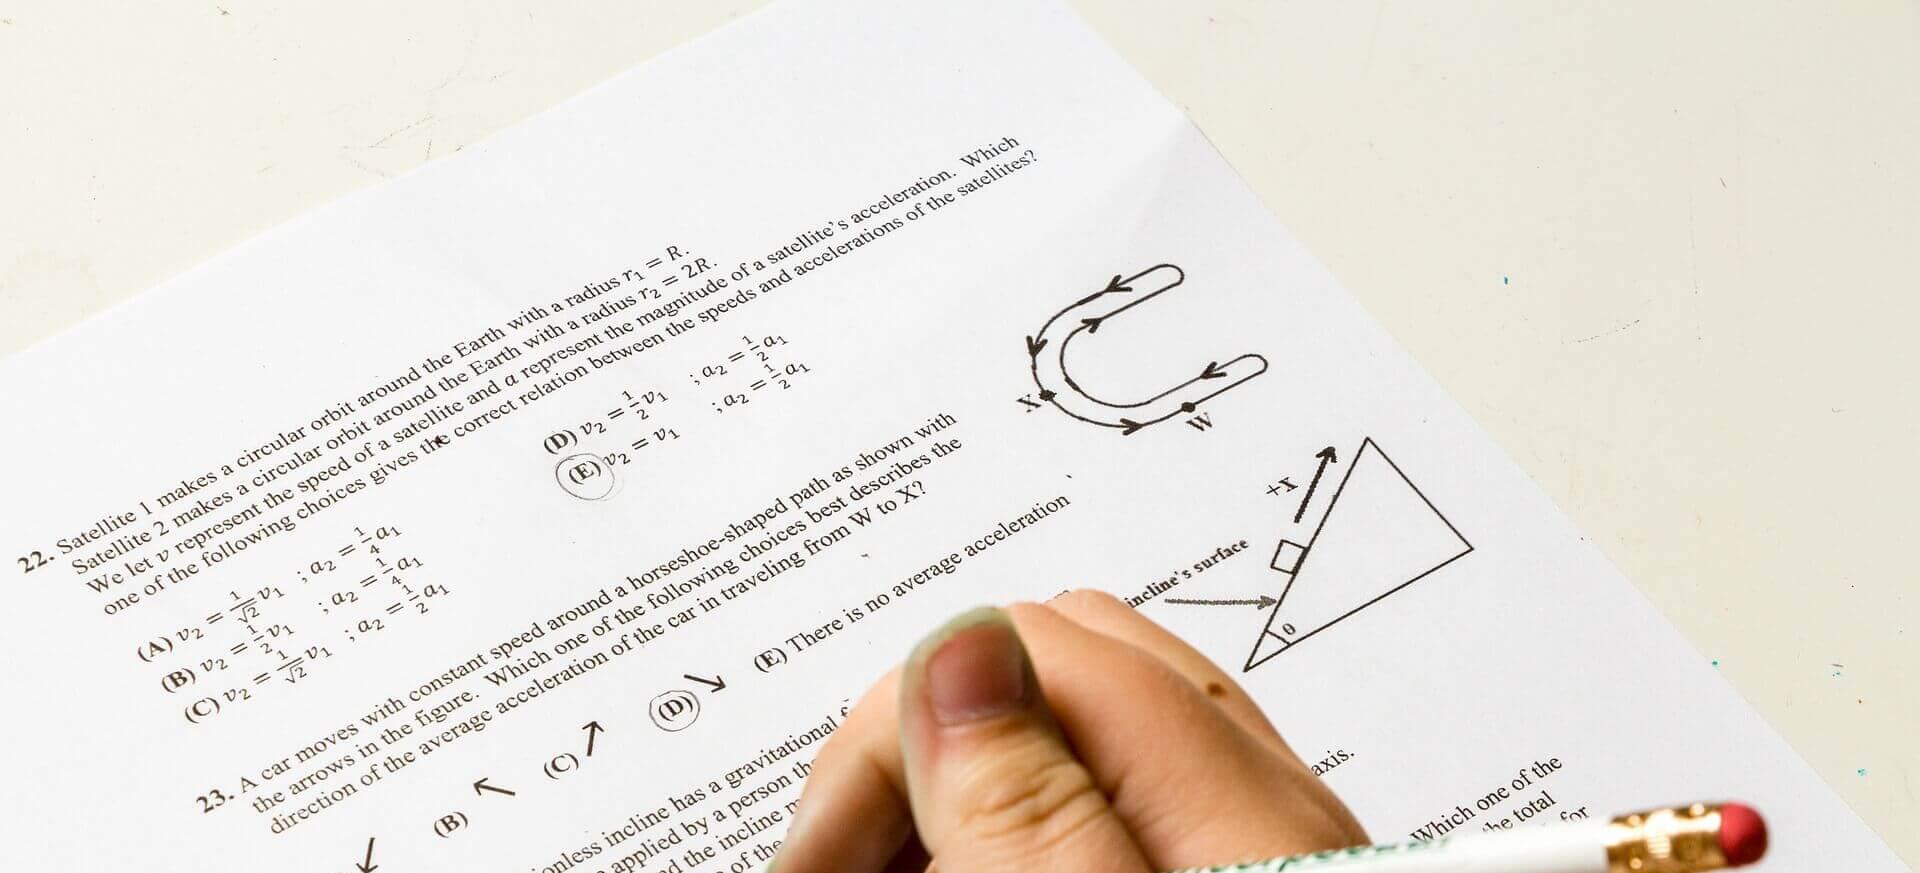 22. Satellite 1 makes a circular orbit around the Earth with a radius r₁ = R.
Satellite 2 makes a circular orbit around the Earth with a radius r₂ = 2R.
We let v represent the speed of a satellite and a represent the magnitude of a satellite's acceleration. Which
one of the following choices gives the correct relation between the speeds and accelerations of the satellites?
(A) v₂ = 1/√2 v₁ ; a₂ = 1/4 a₁
(B) v₂ = 1/2 v₁ ; a₂ = 1/4 a₁
(C) v₂ = 1/√2 v₁ ; a₂ = 1/2 a₁
(D) v₂ = 1/2 v₁ ; a₂ = 1/2 a₁
(E) v₂ = v₁ ; a₂ = 1/2 a₁
23. A car moves with constant speed around a horseshoe-shaped path as shown with
the arrows in the figure. Which one of the following choices best describes the
direction of the average acceleration of the car in traveling from W to X?
(B) ↖ (C) ↗ (D) ↘ (E) There is no average acceleration
X
W
+x
incline's surface
θ
incline has a gravitational
applied by a person
the incline
of the
axis.
Which one of the
total
for